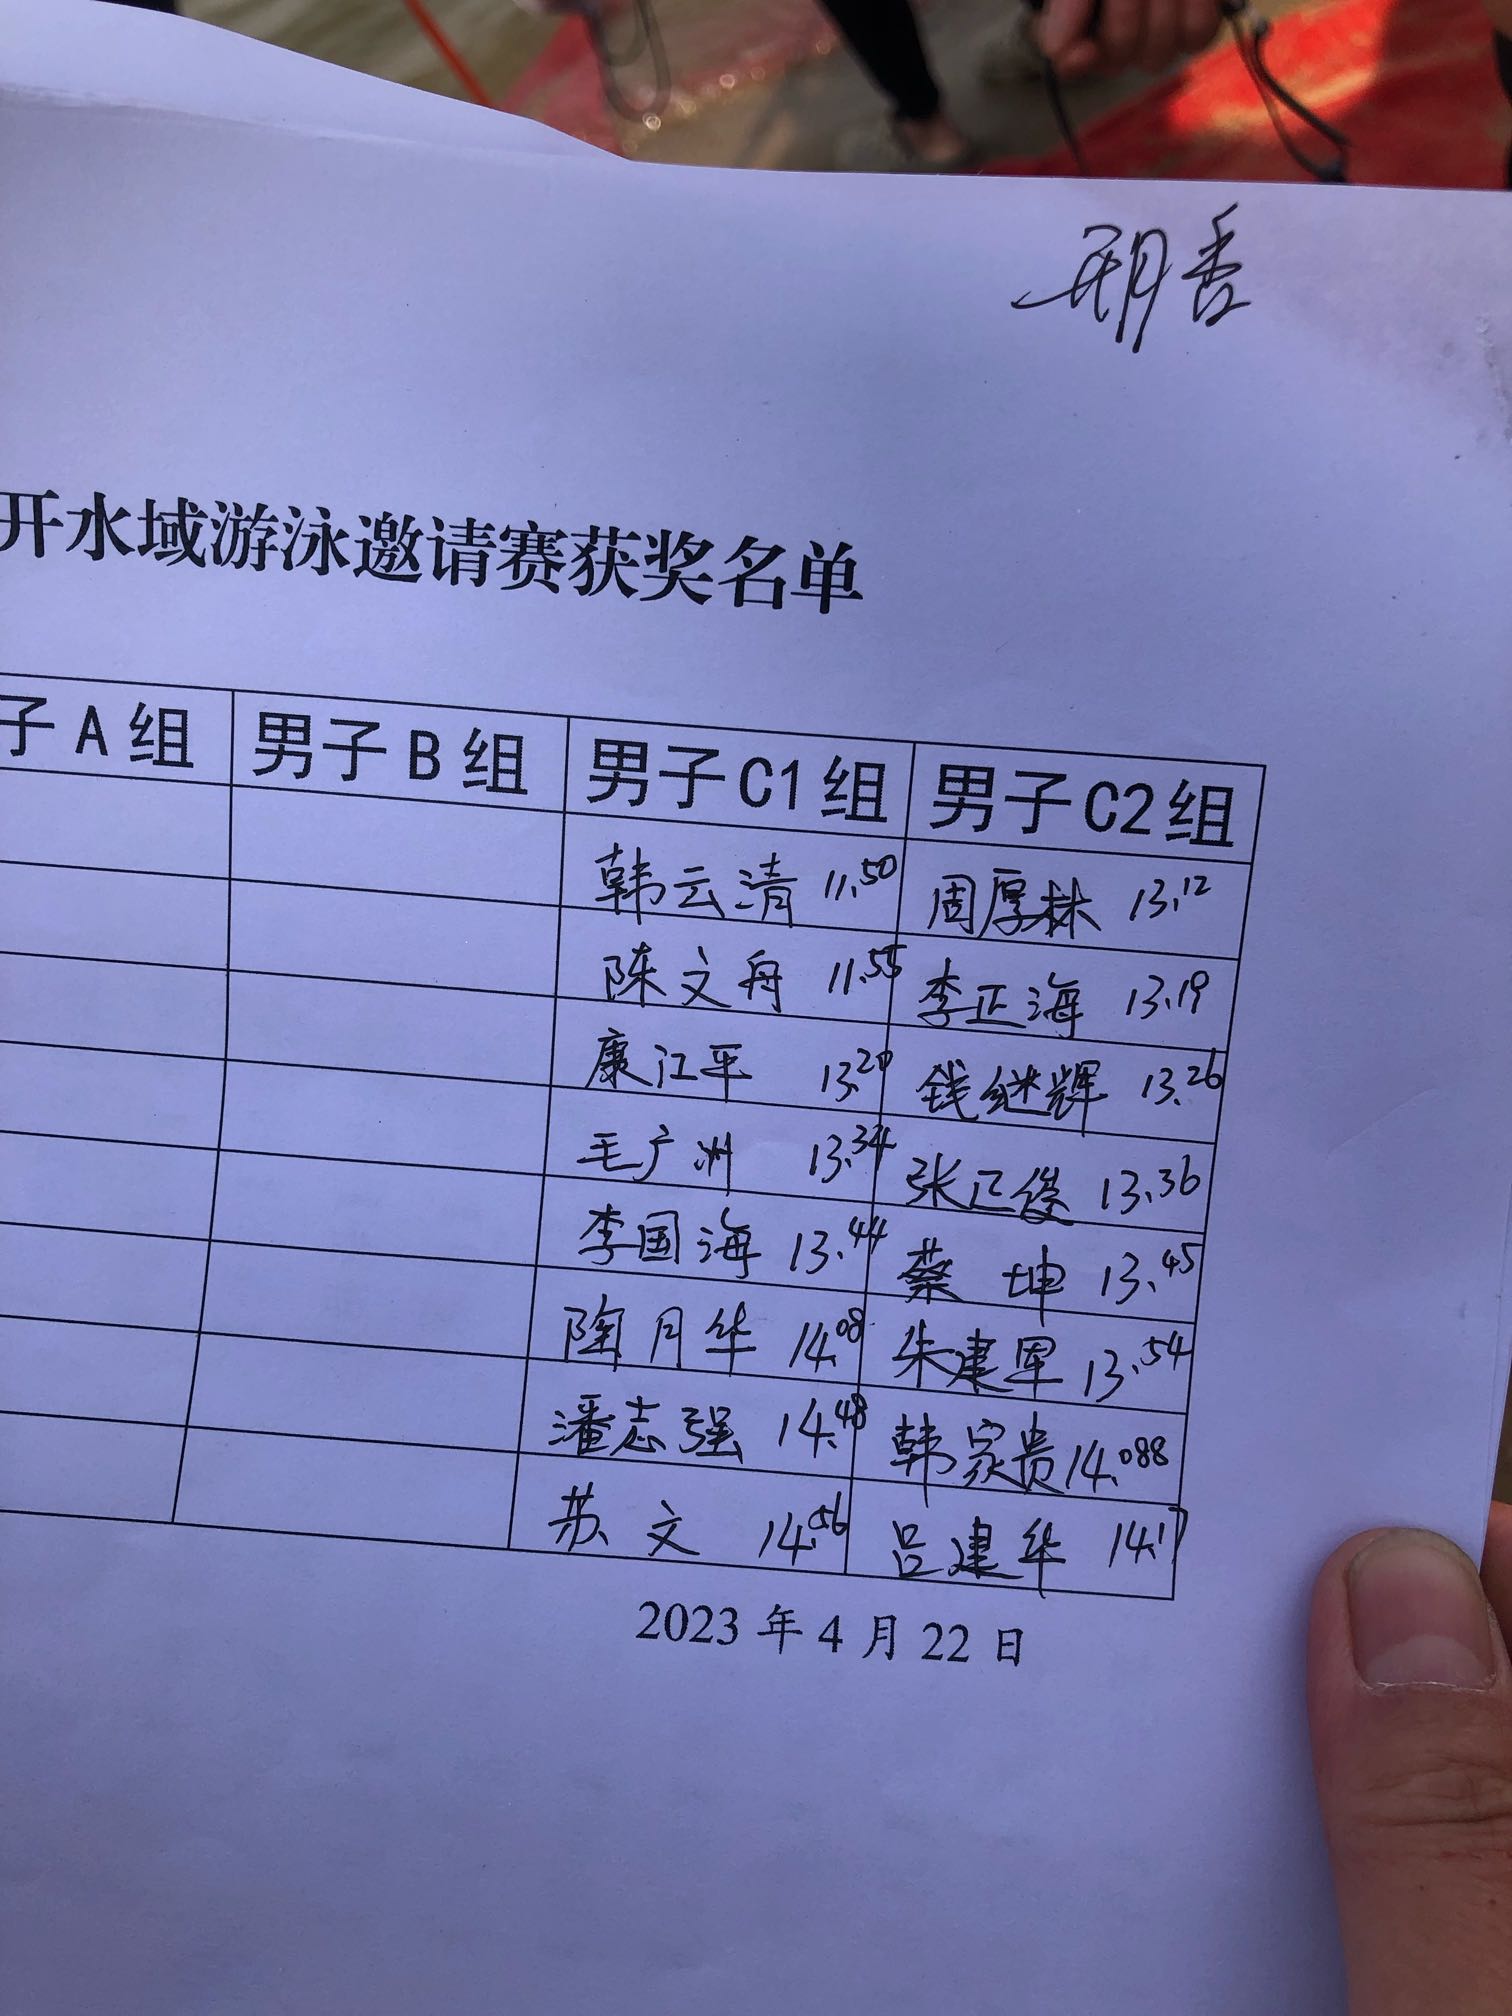 开水域游泳邀请赛获奖名单
子A组 男子B组 男子C1组 男子C2组
韩云清 11.50 周厚林 13.12
陈文舟 11.55 李正海 13.19
康江平 13.20 钱继辉 13.26
毛广洲 13.34 张正俊 13.36
李国海 13.44 蔡坤 13.45
陶月华 14.08 朱建军 13.54
潘志强 14.48 韩家贵 14.088
苏文 14.56 吕建华 14.17
2023年4月22日